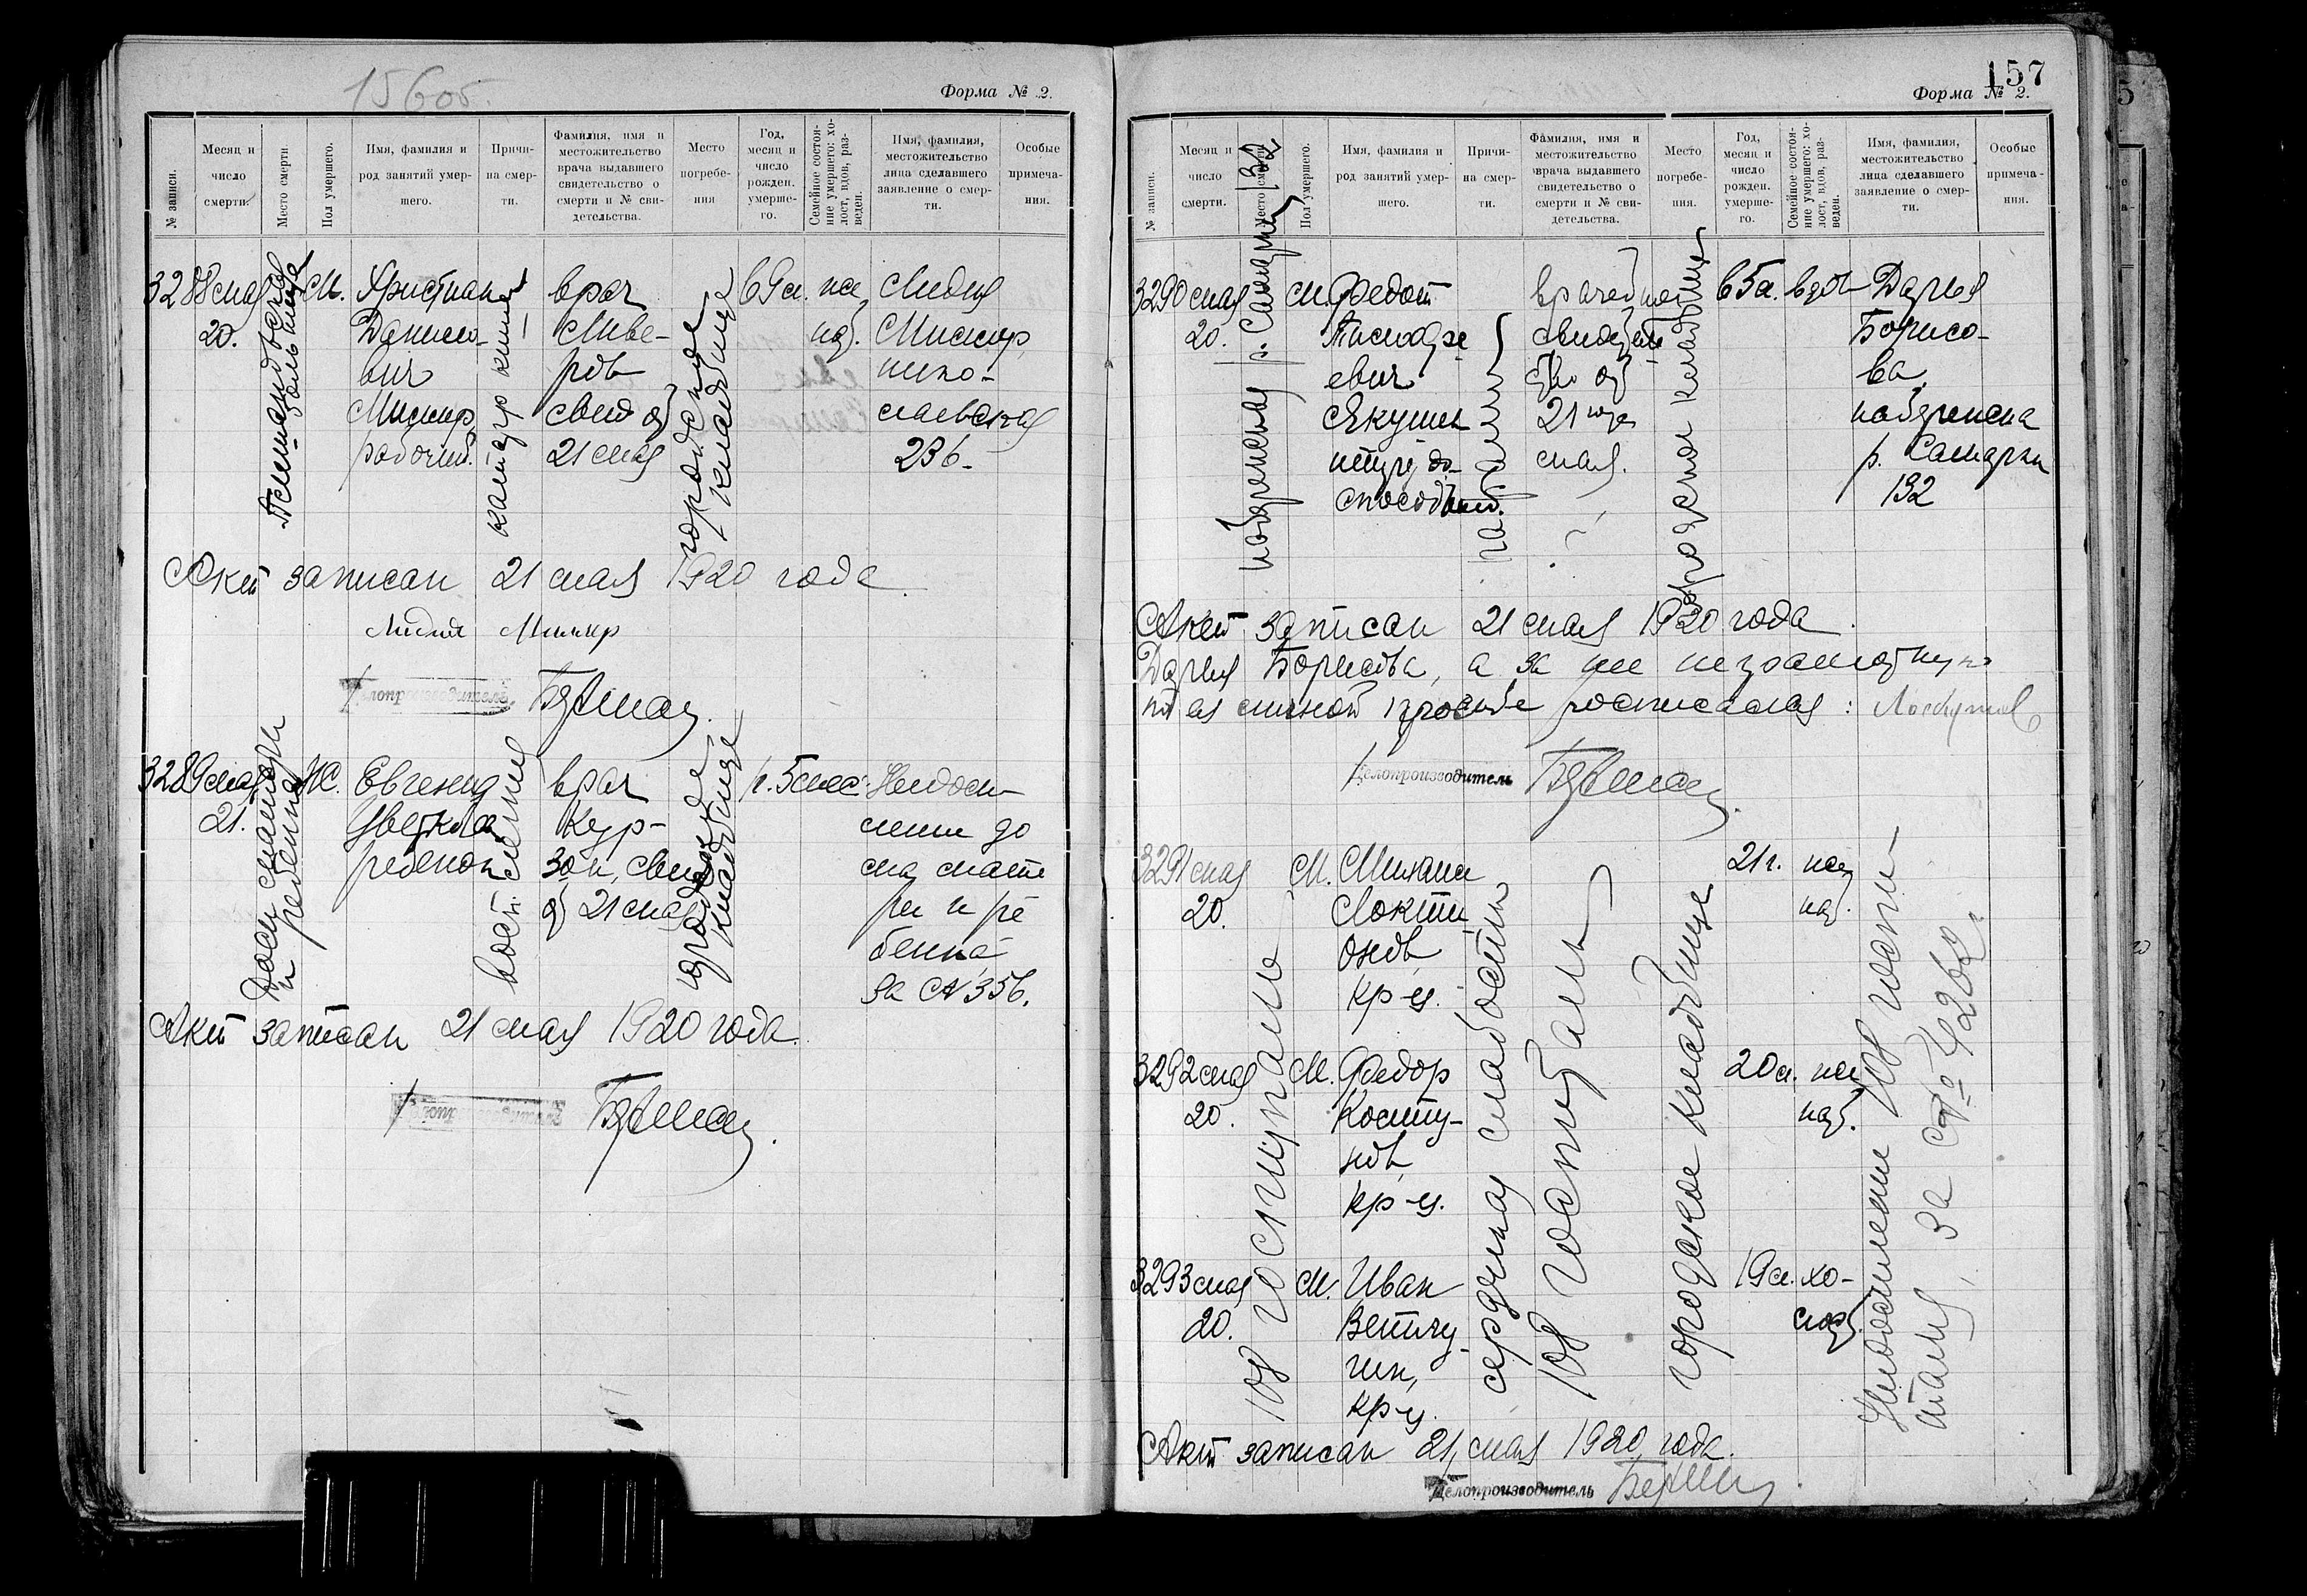 156об.
Форма № 2.
№ записи.
Месяц и число смерти.
Место смерти
Пол умершего.
Имя, фамилия и род занятий умершего.
Причина смерти.
Фамилия, имя и местожительство врача выдавшего свидетельство о смерти и № свидетельства.
Место погребения
Год, месяц и число рожден. умершего.
Семейное состояние умершего: холост, вдов, разведен.
Имя, фамилия, местожительство лица сделавшего заявление о смерти.
Особые примечания.
3288 мая М. врач 69 л. же Лидия
20. Данило- Миллер
вич нико-
Миллер, свид от лаевская
рабочий. 21 мая 236.
больница
катар кишек
городское
кладбище
Акт записан 21 мая 1920 года.
Лидия Миллер
Делопроизводитель
3289 мая Ж. Евгения врач г. 5 мес.
21. Цветкова Кур-
ребенок зон, свид до
от 21 мая ма мате
ри и ре
бенка
за № 356.
Дом матери
и ребенка
городское
кладбище
Акт записан 21 мая 1920 года.
Делопроизводитель
157
Форма № 2.
№ записи.
Месяц и число смерти.
Место смерти
Пол умершего.
Имя, фамилия и род занятий умершего.
Причина смерти.
Фамилия, имя и местожительство врача выдавшего свидетельство о смерти и № свидетельства.
Место погребения.
Год, месяц и число рожден. умершего.
Семейное состояние умершего: холост, вдов, разведен.
Имя, фамилия, местожительство лица сделавшего заявление о смерти.
Особые примечания.
3290 мая М. Федот врачебное 65 л. вдов Дарья
20. свидетель Борисо-
евич ство от ва,
21го набережная
мая. р. Самарки
132
набережная р. Самарки 132
городское кладбище
Акт записан 21 мая 1920 года.
Дарья Борисова, а за нее неграмотную
по ея личной просьбе росписался:
Делопроизводитель
3291 мая М. Михаил 21 г. же
20. Локти нат.
онов,
кр-н.
3292 мая М. Федор 20 л. же
20. Косту- нат.
нов,
кр-н.
3293 мая М. Иван 19 л. хо-
20. Ветлу лост.
гин,
кр-н.
108 госпиталь
сердечная слабость
108 госпиталь
городское кладбище
108 госпи-
таля, за № 4262.
Акт записан 21 мая 1920 года.
Делопроизводитель